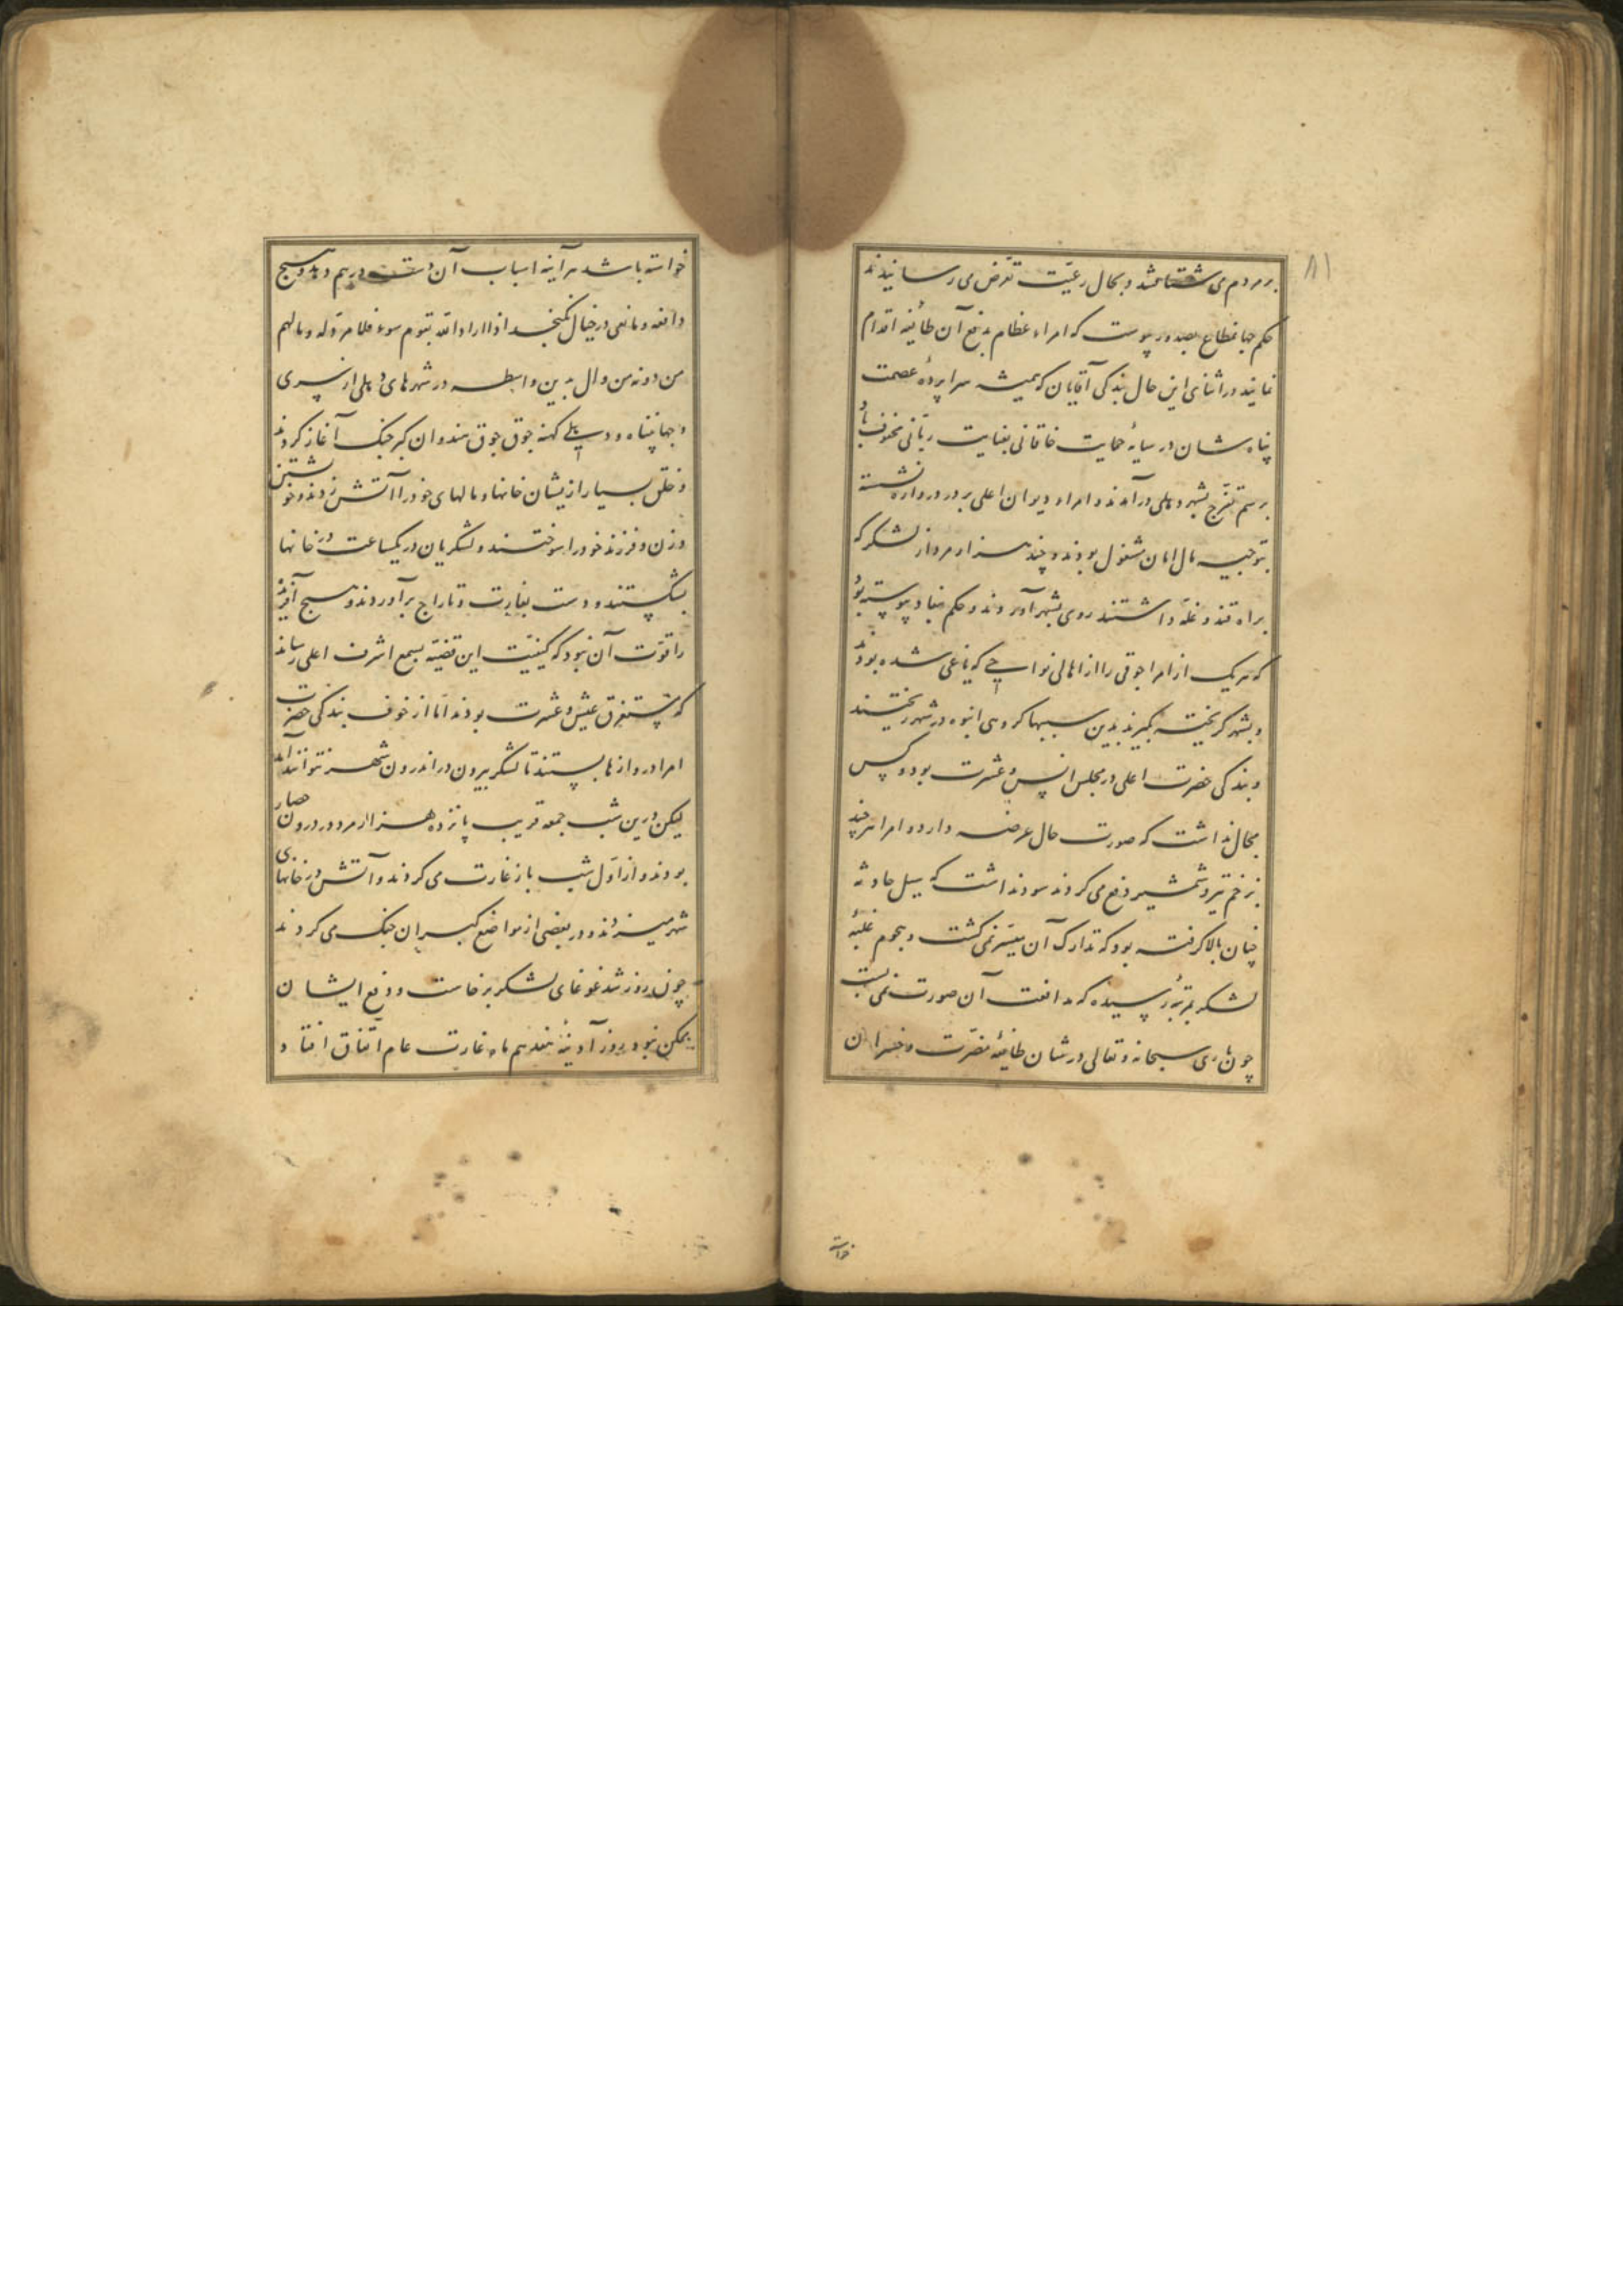 ۸۱
بر مردم می شتافتند و بحال رعیّت تعرّض می رسانیدند
حکم جهانمطاع بصدور پیوست که امراء عظام بدفع آن طائفه اقدام
نمایند در اثنای این حال بندکی آقایان که همیشه سراپردهٔ عصمت
پناه شان در سایهٔ حمایت خاقانی بعنایت ربّانی محفوف باد
برسم تفرّج بشهر دهلی درآمدند و امراء دیوان اعلی بر در دروازه نشسته
بتوجیه مال امان مشغول بودند و چند هزار مرد از لشکر که
براه قند و غلّه داشتند روی بشهر آوردند و حکم بنفاد پیوسته بود
که هر یک از امرا جوقی را از اهالی نواحی که یاغی شده بودند
و بشهر کریخته بکیرند بدین سببها کروهی انبوه در شهر ریختند
و بندکی حضرت اعلی در مجلس انس و عشرت بود و کس
مجال نداشت که صورت حال عرضه دارد و امرا هر چند
بزخم تیر و شمشیر دفع می کردند سود نداشت که سیل حادثه
چنان بالا کرفته بود که تدارک آن میسّر نمی کشت و هجوم غلبهٔ
لشکر بمرتبهٔ رسیده که مدافعت آن صورت نمی بست
چون باری سبحانه و تعالی در شان طائفهٔ مضرّت و خسران
خواسته
خواسته باشد هر آینه اسباب آن دست درهم دهد و هیچ
دافعه و مانعی در خیال نکنجد اذا اراد الله بقوم سوء فلا مردّ له و مالهم
من دونه من وال بدین واسطه در شهرهای دهلی از سیری
و جهان پناه و دهلی کهنه جوق جوق هندوان کبر جنک آغاز کردند
و خلق بسیار ازیشان خانها و مالهای خود را آتش زدند و خویشتن
و زن و فرزند خود را سوختند و لشکریان در یکساعت در خانها
بشکستند و دست بغارت و تاراج برآوردند و هیچ آفریده
را قوّت آن نبود که کیفیّت این قضیّه بسمع اشرف اعلی رساند
که مستغرق عیش و عشرت بودند امّا از خوف بندکی حضرت
امرا دروازها ببستند تا لشکر بیرون در اندرون شهر نتوانند آمد
لیکن درین شب جمعه قریب پانزده هزار مرد در درون حصار
بودند و از اوّل شب باز غارت می کردند و آتش در خانهای
شهر میزدند و در بعضی از مواضع کبران جنک می کردند
چون روز شد غوغای لشکر برخاست و دفع ایشان
ممکن نبود روز آدینه هفدهم ماه غارت عام اتّفاق افتاد